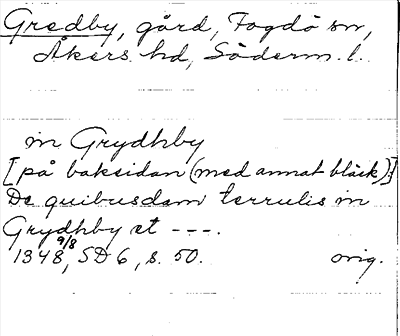 Gredby, gård, Fogdö sn,
Åkers hd, Söderm. l.
in Grydhby
[på baksidan (med annat bläck)]
De quibusdam terrulis in
Grydhby et ---.
1348 9/8, SD 6, s. 50. orig.